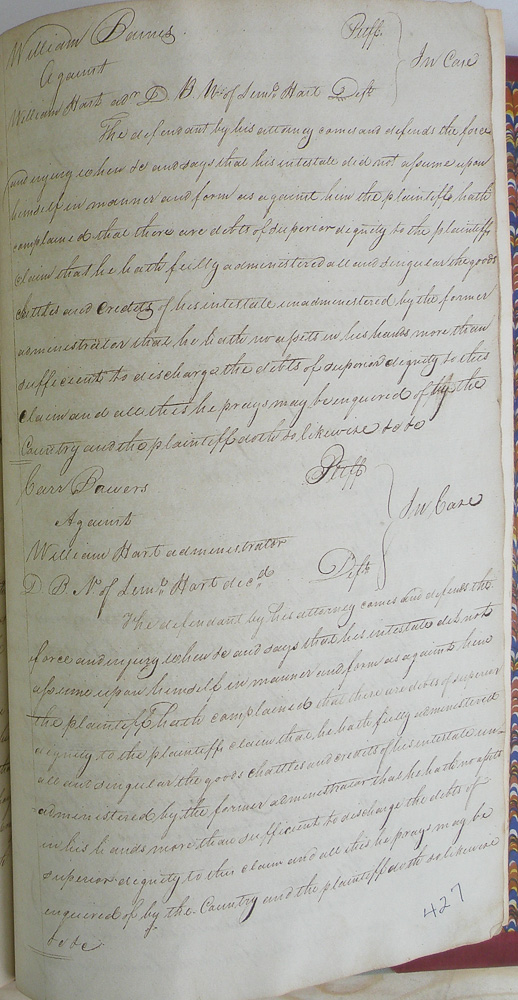 William Barnes Plff
Against In Case
William Hart adr D. B. N. of Lem.l Hart Deft
The defendant by his attorney comes and defends the force
and injury when &c and says that his intestate did not assume upon
himself in manner and form as against him the plaintiff hath
complained that there are debts of superior dignity to the plaintiff
claim that he hath fully administered all and singular the goods
chattles and credits of his intestate unadministered by the former
administrator that he hath no assets in his hands more than
sufficient to discharge the debts of superior dignity to this
claim and all this he prays may be inquired of by the
Country and the plaintiff doth so likewise &c &c
Carr Bowers Plff
Against In Case
William Hart administrator
D B N. of Lem.l Hart dec.d Deft
The defendant by his attorney comes and defends the
force and injury when &c and says that his intestate did not
assume upon himself in manner and form as against him
the plaintiff hath complained that there are debts of superior
dignity to the plaintiffs claim that he hath fully administered
all and singular the goods chattles and credits of his intestate un-
administered by the former administrator that he hath no assets
in his hands more than sufficient to discharge the debts of
superior dignity to this claim and all this he prays may be
enquired of by the Country and the plaintiff doth so likewise
&c &c
427